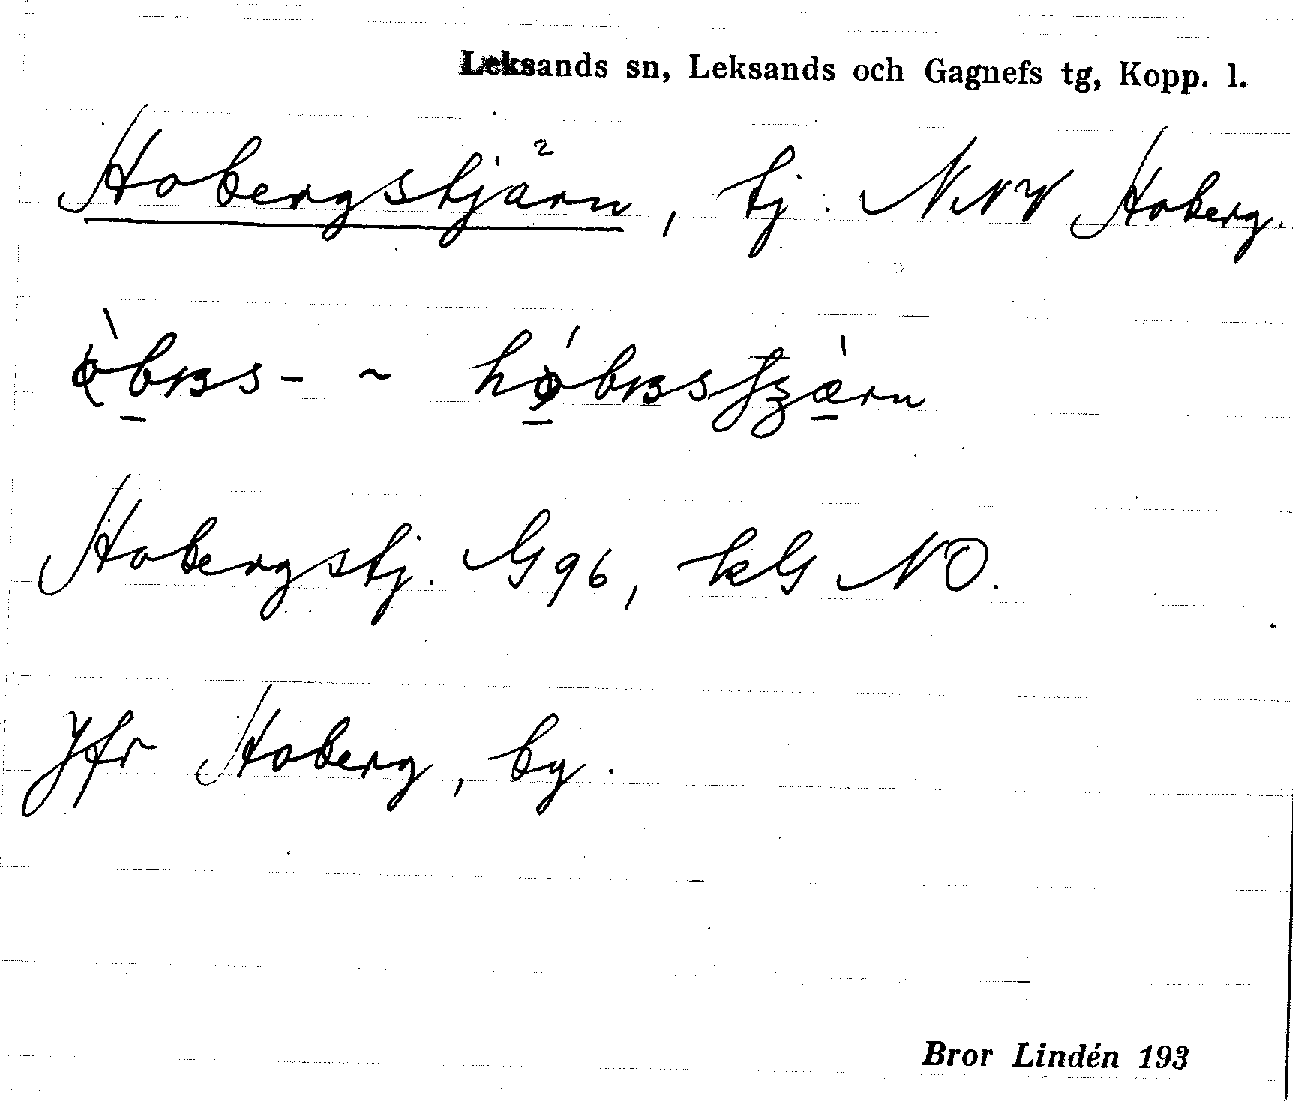 Leksands sn, Leksands och Gagnefs tg, Kopp. l.
Hobergstjärn, tj. NNV Hoberg.
Hobergstj. G96, kG NO.
Jfr Hoberg, by.
Bror Lindén 193